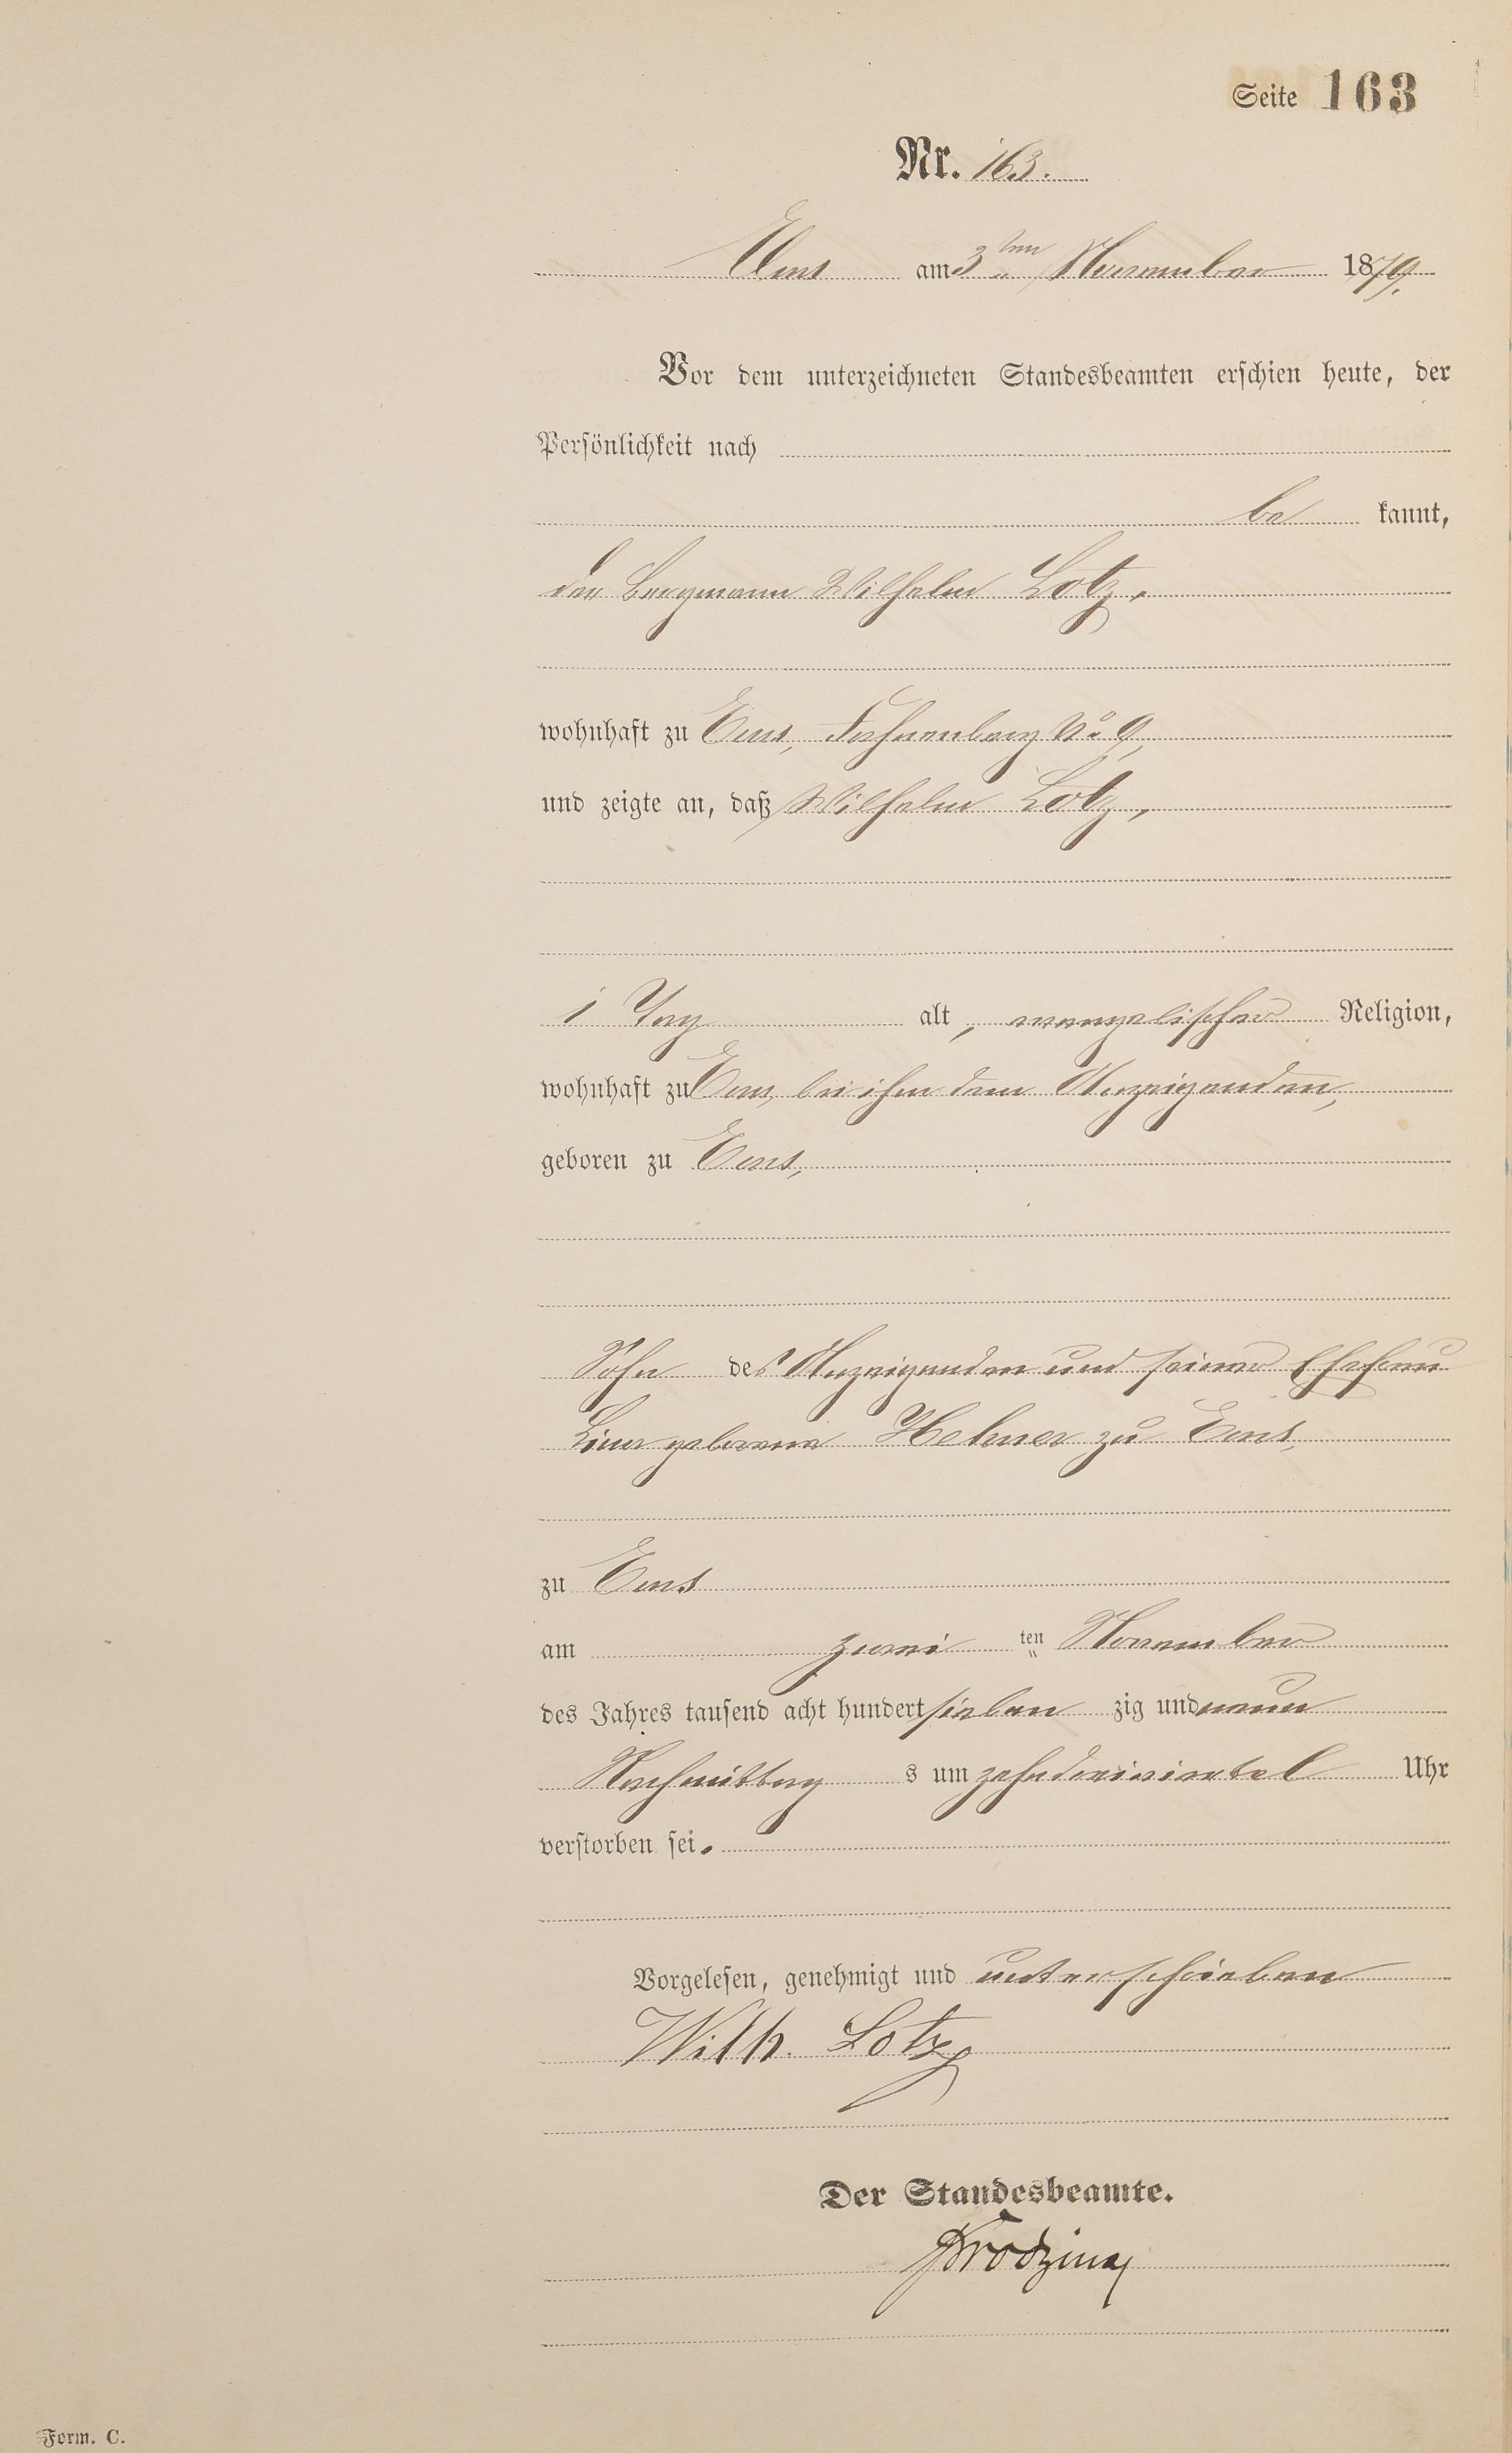 Seite 163
Nr. 163.
Ems am 3ten November 1879.
Vor dem unterzeichneten Standesbeamten erschien heute, der
Persönlichkeit nach
be kannt,
der Bergmann Wilhelm Lotz,
wohnhaft zu Ems, No 9,
und zeigte an, daß Wilhelm Lotz,
1 Tag alt, evangelischer Religion,
wohnhaft zu Ems, bei ihm dem Anzeigenden,
geboren zu Ems,
Sohn des Anzeigenden und seiner Ehefrau
Lina geborene Hehner zu Ems,
zu Ems
am zwei ten November
des Jahres tausend acht hundert sieben zig und neun
Nachmittag s um zehndreiviertel Uhr
verstorben sei.
Vorgelesen, genehmigt und unterschrieben
Wilh. Lotz
Der Standesbeamte.
Form. C.